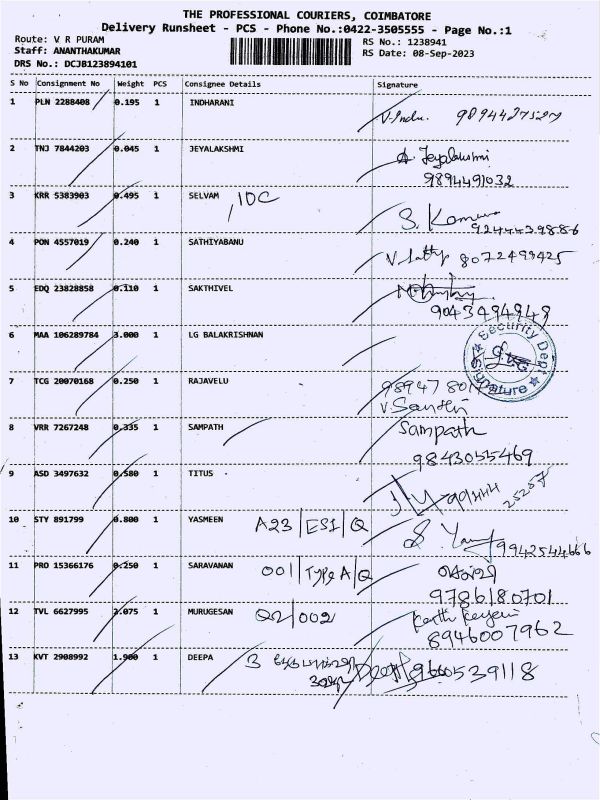 THE PROFESSIONAL COURIERS, COIMBATORE
Delivery Runsheet - PCS - Phone No.:0422-3505555 - Page No.:1
Route: V R PURAM RS No.: 1238941
Staff: ANANTHAKUMAR RS Date: 08-Sep-2023
DRS No.: DCJB123894101
S No Consignment No Weight PCS Consignee Details Signature
1 PLN 2288408 0.195 1 INDHARANI V.Indu. 9894427527
2 TNJ 7844203 0.045 1 JEYALAKSHMI Jeyalakshmi
9894491032
3 KRR 5383903 0.495 1 SELVAM IOC S.
9244439886
4 PON 4557019 0.240 1 SATHIYABANU V. Sathy 8072499425
5 EDQ 23828858 0.110 1 SAKTHIVEL
9043494949
6 MAA 106289784 3.000 1 LG BALAKRISHNAN Security Dept
Signature
7 TCG 20070168 0.250 1 RAJAVELU
V.Santhi
8 VRR 7267248 0.335 1 SAMPATH Sampath
9843055469
9 ASD 3497632 0.580 1 TITUS
10 STY 891799 0.800 1 YASMEEN A23/ES1/Q 9942544666
11 PRO 15366176 0.250 1 SARAVANAN 001/Type A/Q
9786180701
12 TVL 6627995 2.075 1 MURUGESAN Q2/002
8946007962
13 KVT 2908992 1.900 1 DEEPA 3 539118